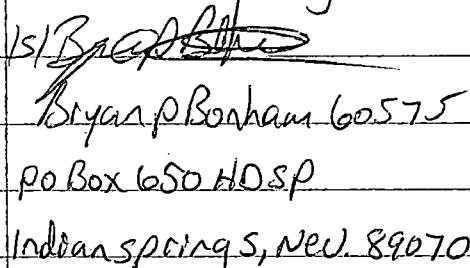 /s/
Bryan P Bonham 60575
PO Box 650 HDSP
Indian Springs, Nev. 89070